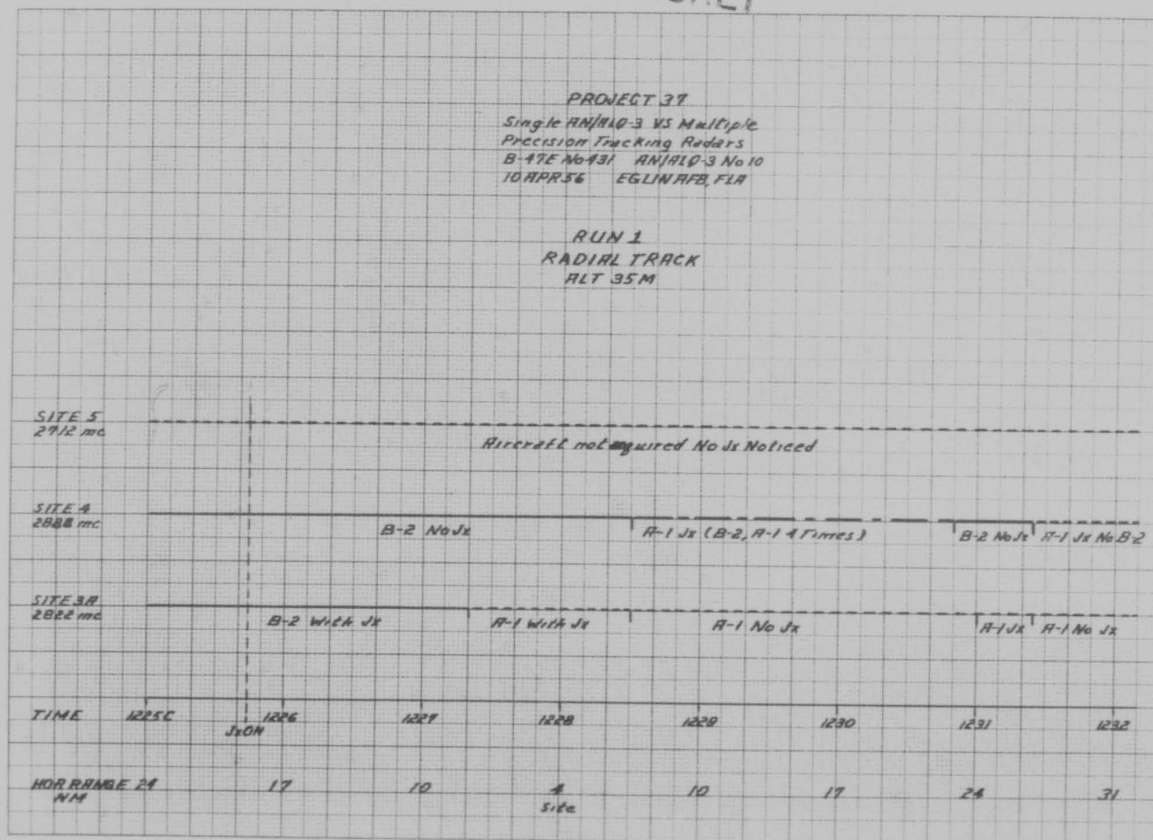 PROJECT 37
Single AN/ALQ-3 VS Multiple
Precision Tracking Radars
B-47E No 431 AN/ALQ-3 No 10
10 APR 56 EGLIN AFB, FLA
RUN 1
RADIAL TRACK
ALT 35M
SITE 5
2712 mc
Aircraft not aquired No Jx Noticed
SITE 4
2888 mc
B-2 No Jx A-1 Jx (B-2, A-1 4 Times) B-2 No Jx A-1 Jx No B-2
SITE 3A
2822 mc
B-2 With Jx A-1 With Jx A-1 No Jx A-1 Jx A-1 No Jx
TIME 1225C 1226 1227 1228 1229 1230 1231 1232
Jx ON
HOR RANGE 24 17 10 4 10 17 24 31
NM Site